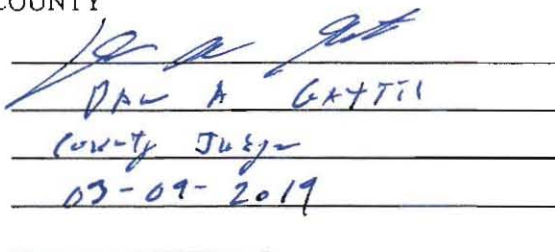 COUNTY
Dan A Gattis
County Judge
03-09-2019